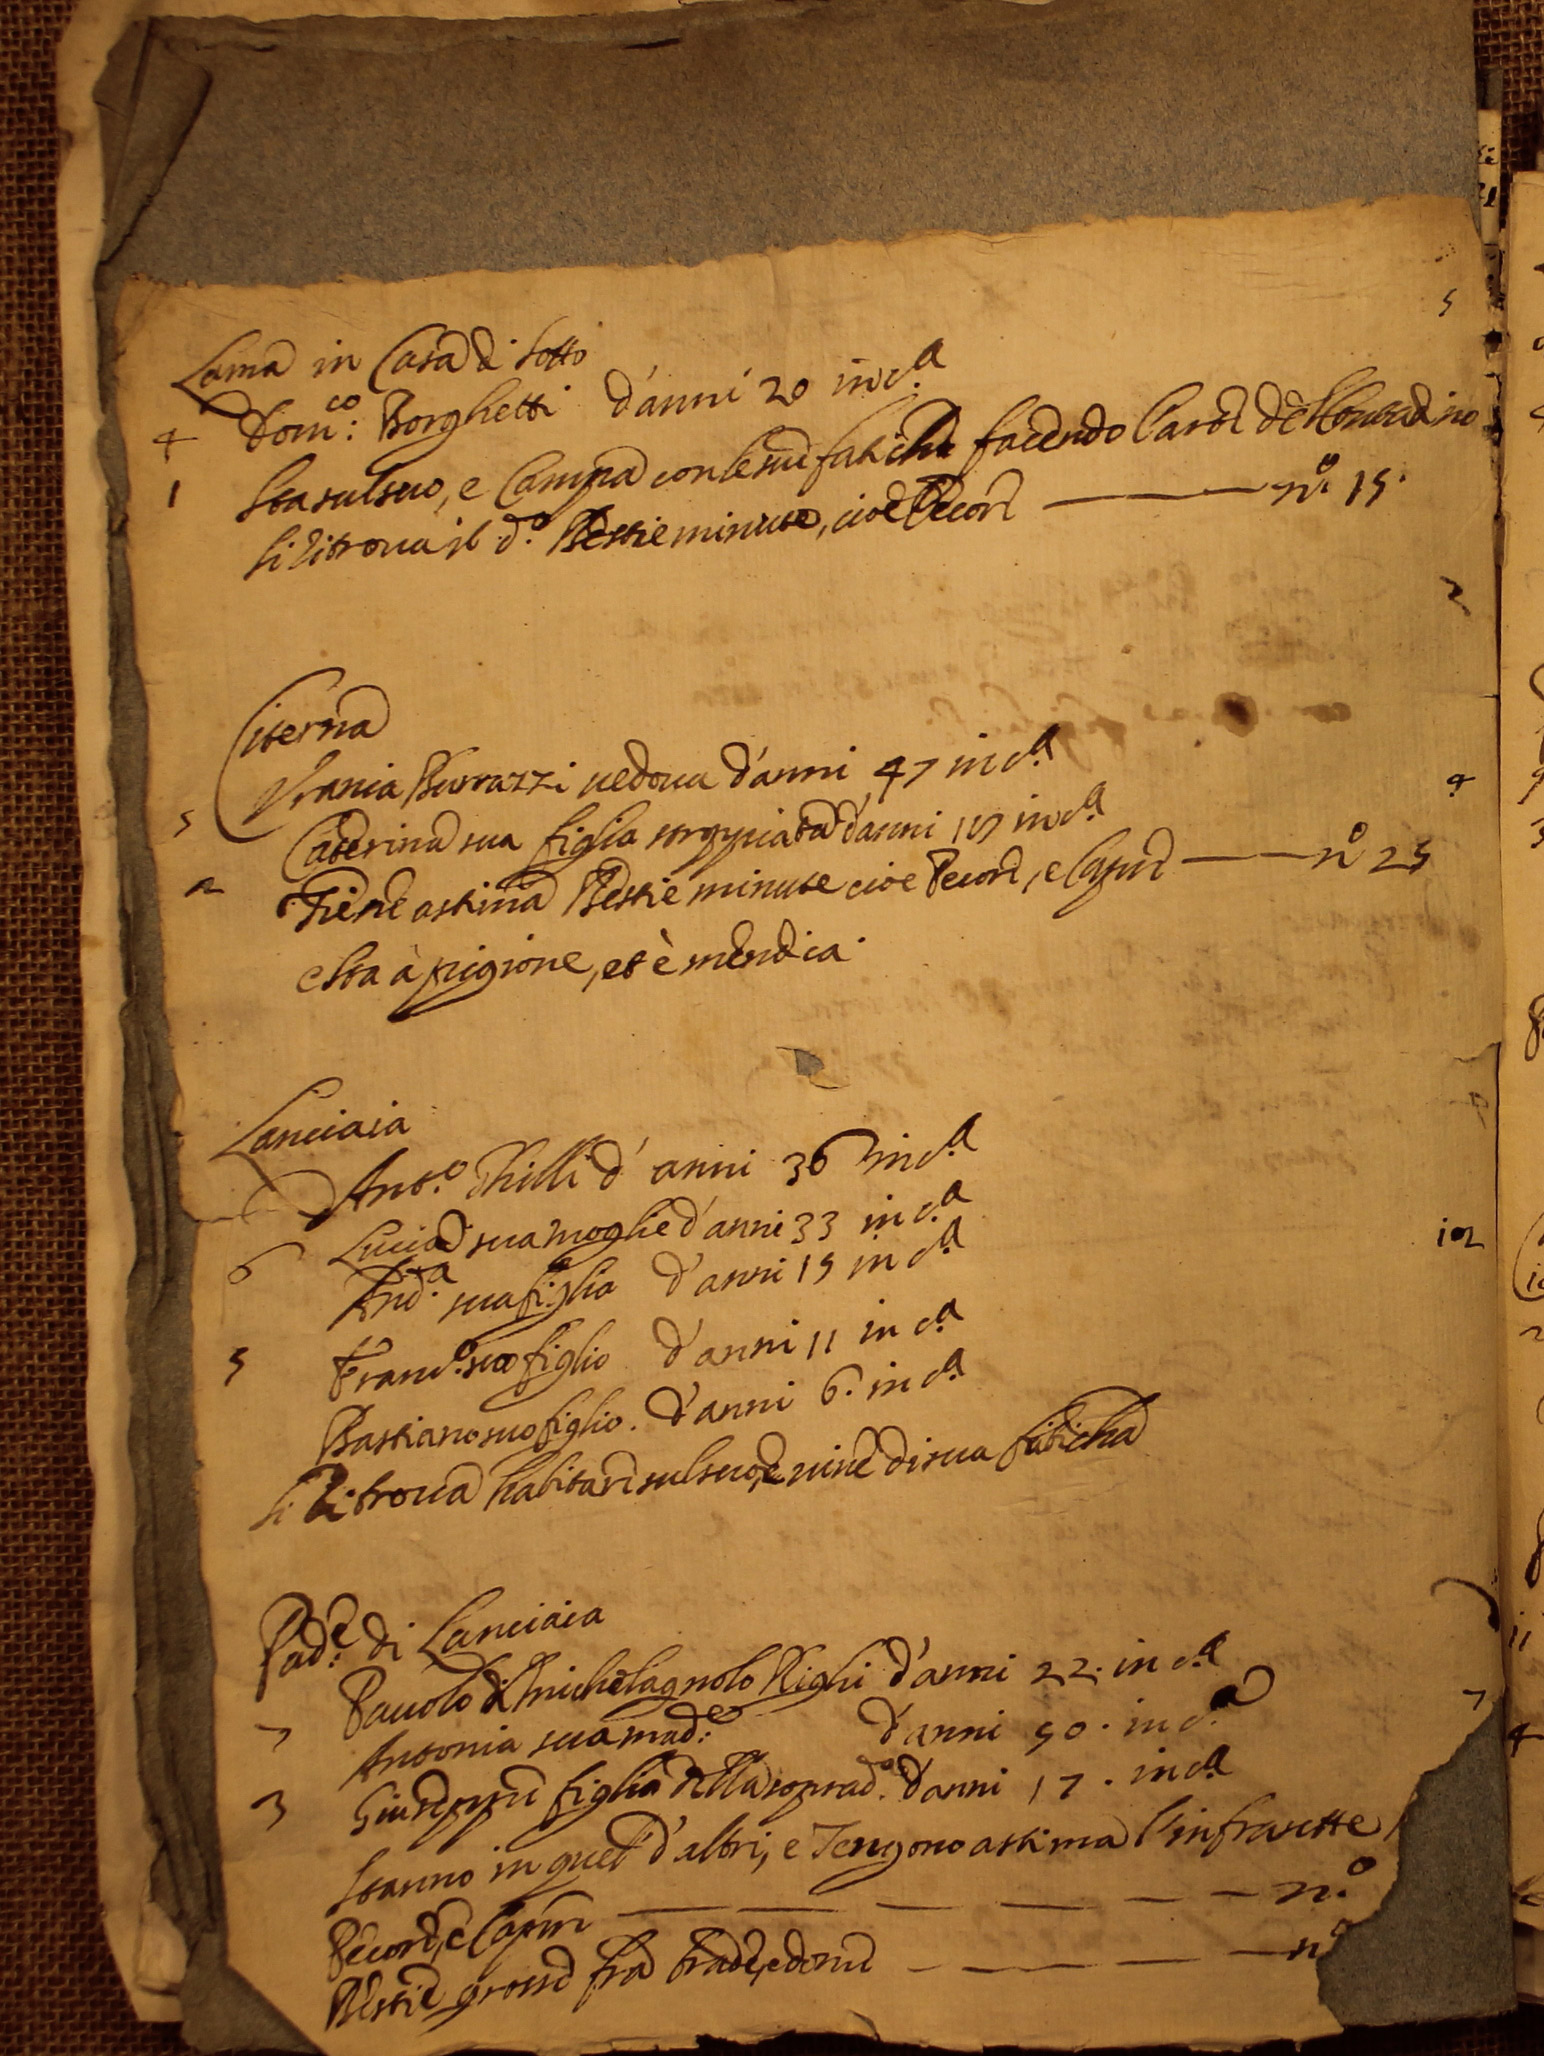 5
Lama in Casa di sotto
4 Dom:co Borghetti d'anni 20 in c.a
1 Sta sul suo, e Campa con le sue fatiche facendo l'arte de
Si ritrova il d.o Bestie minute, cioè Pecore n.o 15.
2
Citerna
Urania Burrazzi vedova d'anni 47 in c.a
4
5 Caterina sua figlia d'anni in c.a
2 Tiene a stima Bestie minute cioe Pecore, e Capre n.o 25
e sta à pigione, et è mendica.
Lanciaia
Ant.o d'anni 36 in c.a
6 Lucia sua moglie d'anni 33 in c.a
And.a sua figlia d'anni 15 in c.a
5 Franc.o suo figlio d'anni 11 in c.a
Bastiano suo figlio. d'anni 6. in c.a
Si ritrova habitare sul suo, e vive di sua faticha
Pad.e di Lanciaia
Pavolo di Michelagnolo Righi d'anni 22. in c.a
7 Antonia sua mad:e d'anni 50. in c.a
7
3 Giuseppe figlia della soprad.a d'anni 17. in c.a
Stanno in quel d'altri, e Tengono a stima l'infrascritte
Pecore, e Capre n.o
Bestie grosse fra brade, e dome n.o